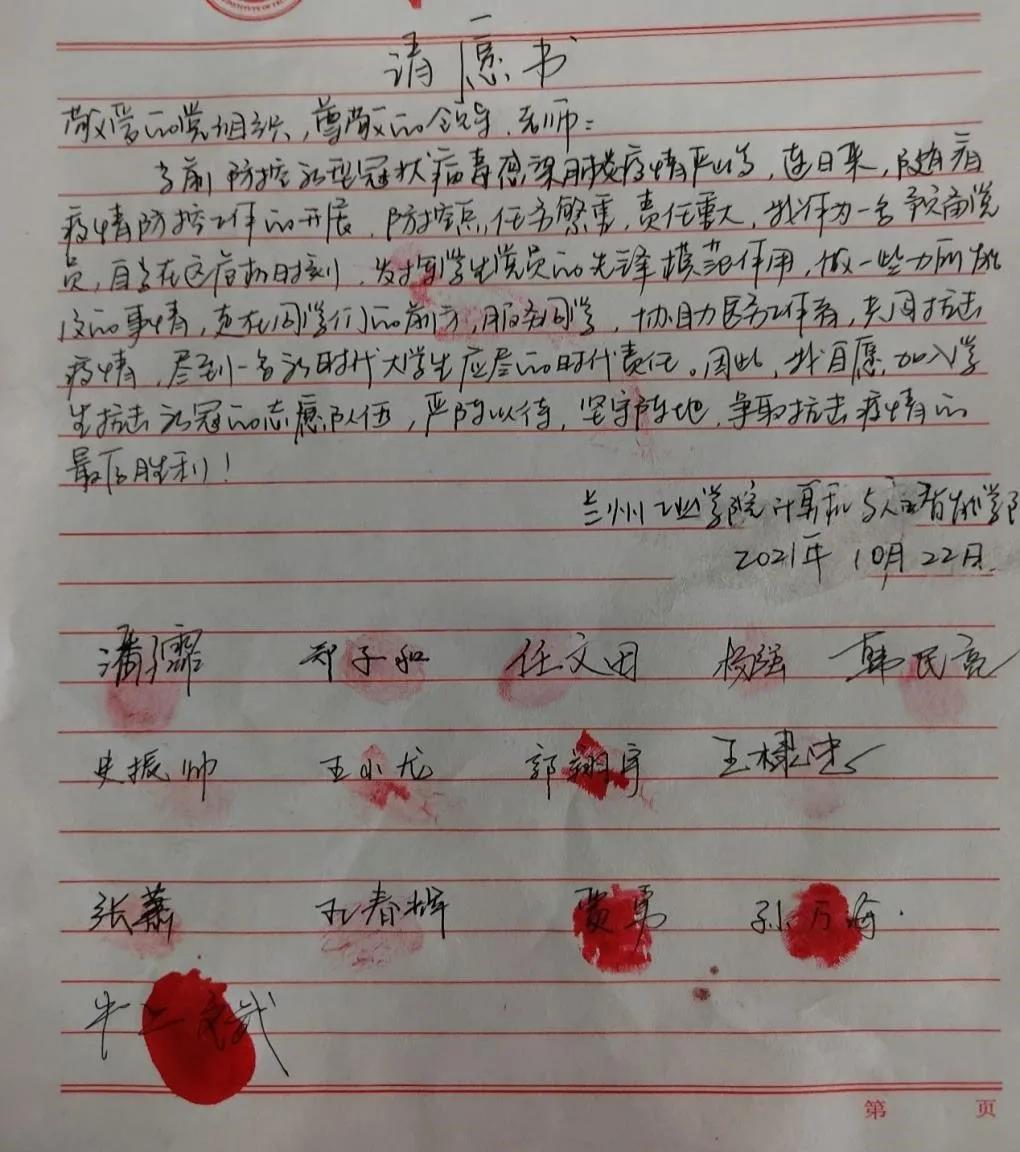 请愿书
敬爱的党组织，尊敬的领导、老师：
当前防控新型冠状病毒感染肺炎疫情严峻，连日来，随着
疫情防控工作的开展，防控点任务繁重，责任重大，我作为一名预备党
员，自当在这危机时刻，发挥学生党员的先锋模范作用，做一些力所能
及的事情，走在同学们的前方，服务同学，协助医务工作者，共同抗击
疫情，尽到一名新时代大学生应尽的时代责任。因此，我自愿加入学
生抗击新冠的志愿队伍，严阵以待，坚守阵地，争取抗击疫情的
最后胜利！
兰州工业学院计算机与人工智能学院
2021年10月22日
郑子和 任文田 杨强 韩民亮
史振帅 王小龙 郭翔宇 王棣忠
张萧 孔春辉 贾勇 孙万海
牛上
第 页